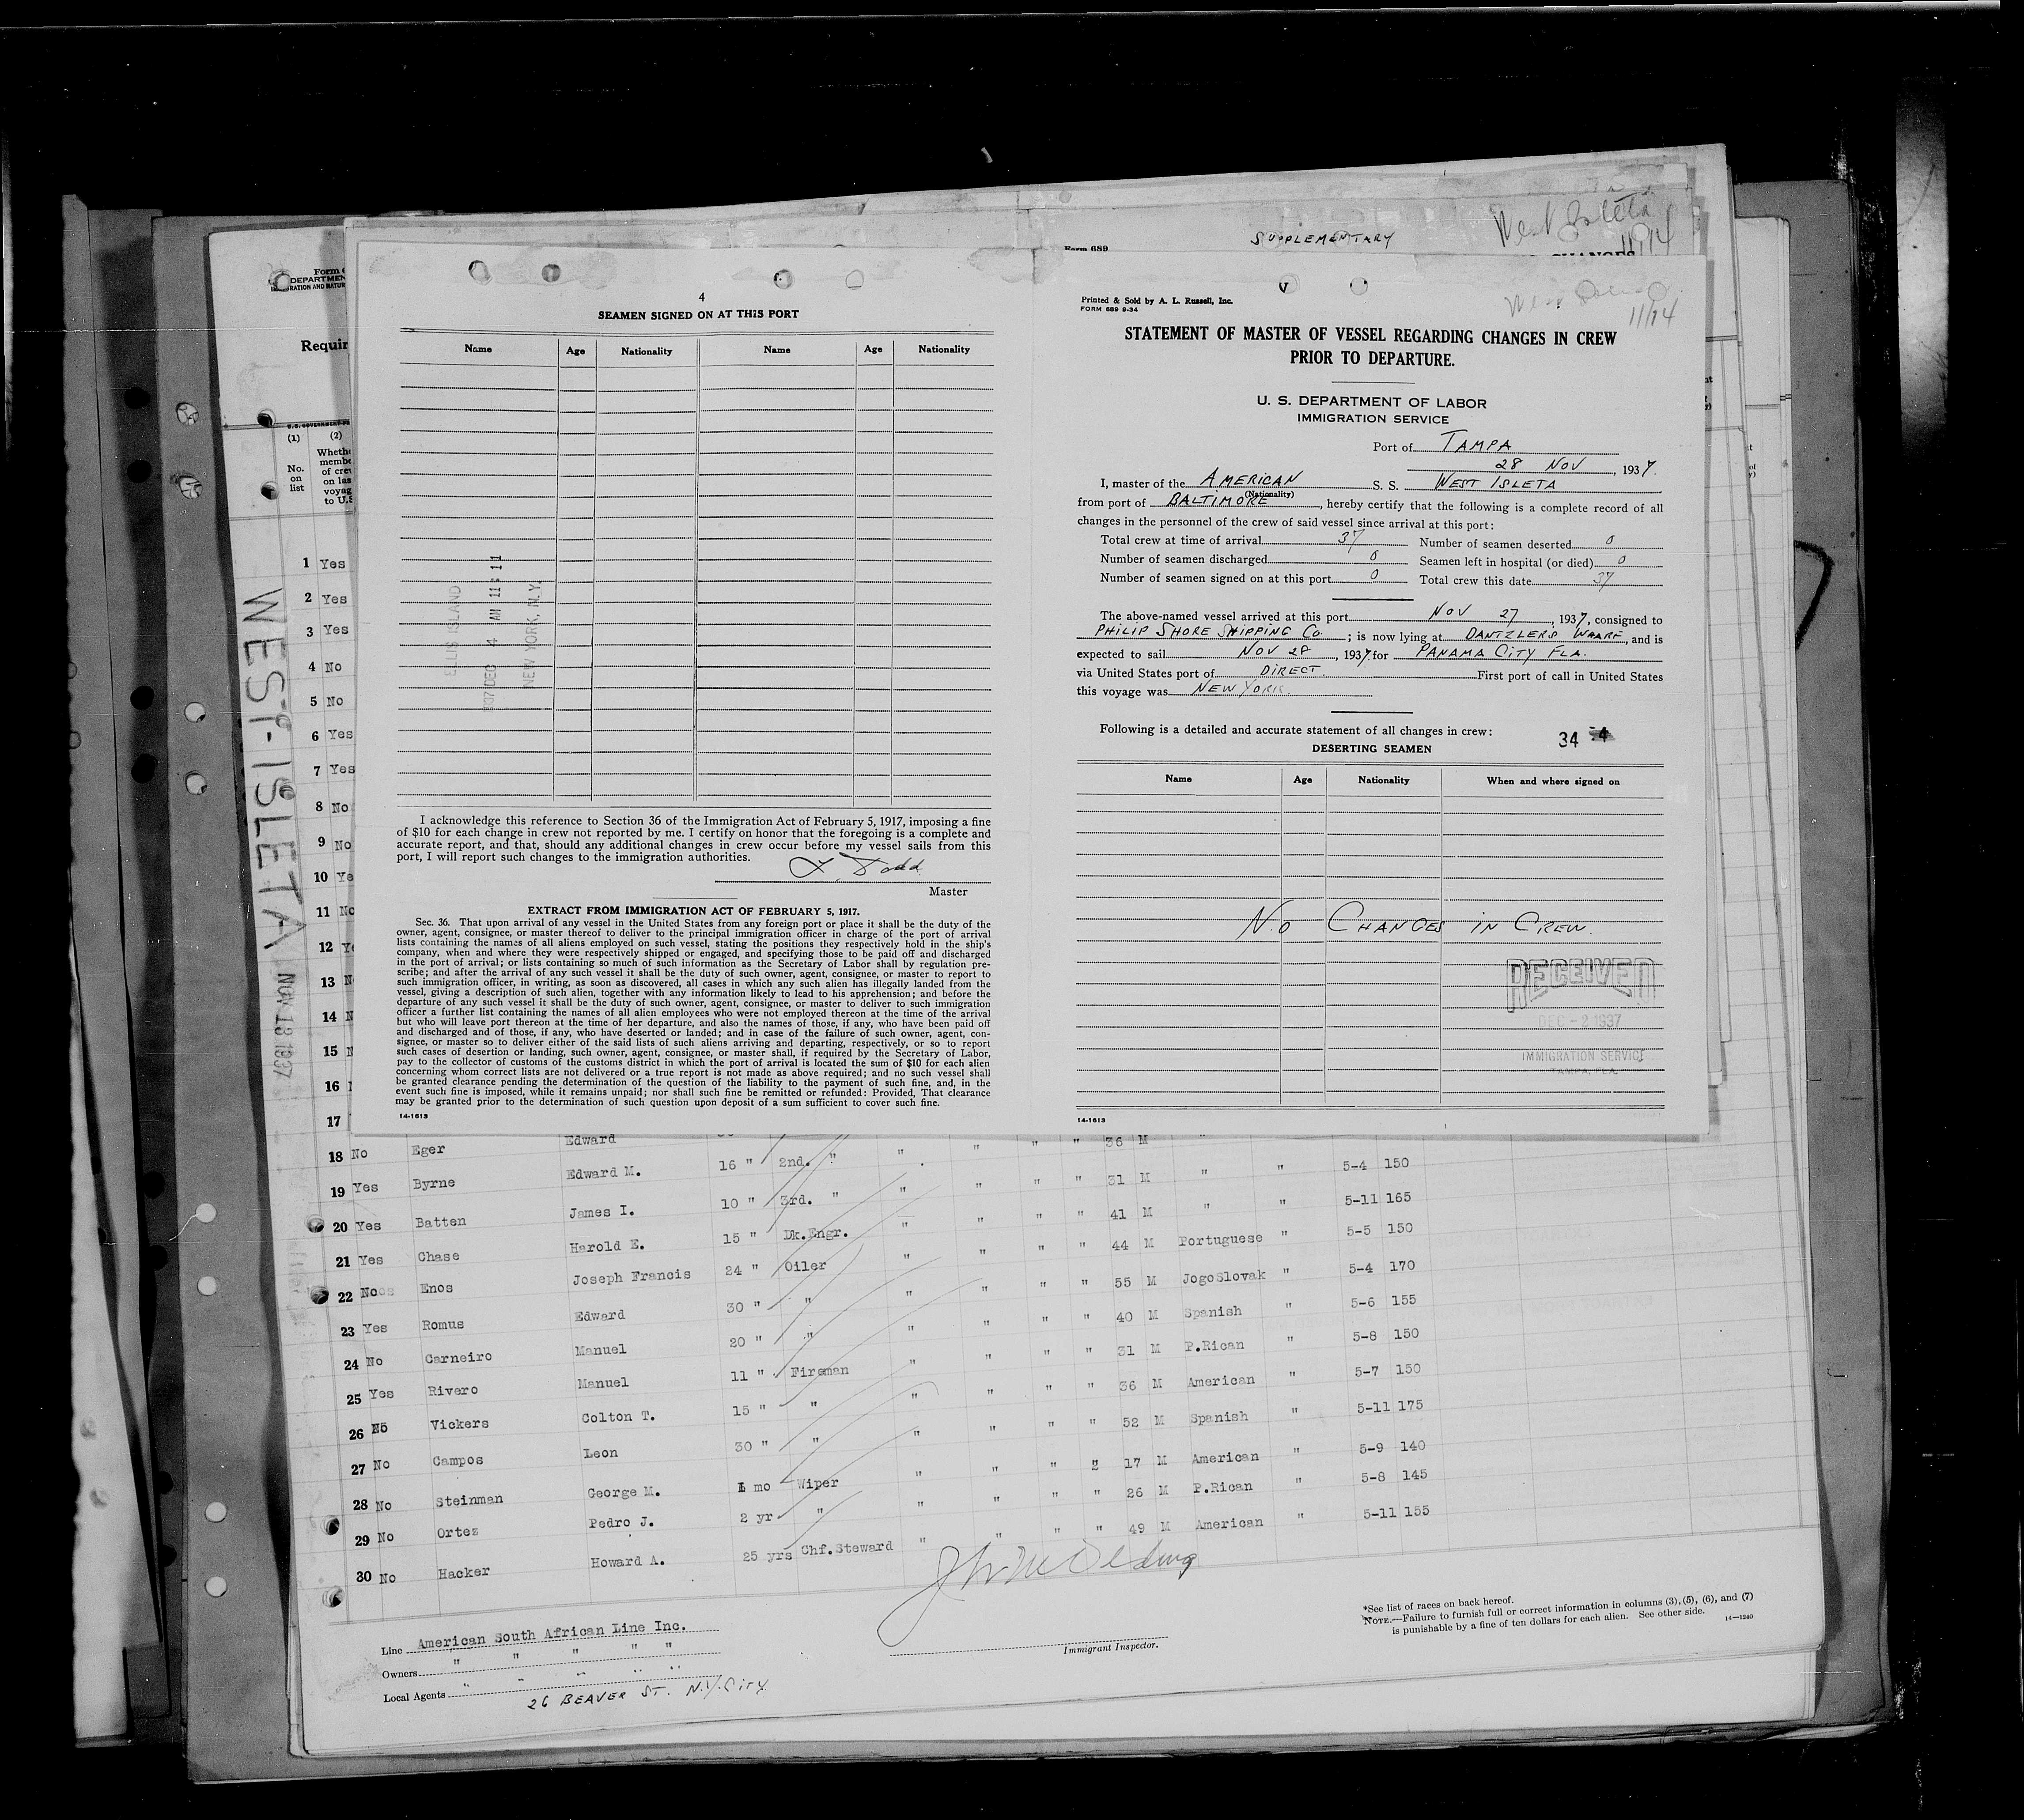 SUPPLEMENTARY
West Isleta
11/14
Form 689
CHANGES
Form
DEPARTMEN
RATION AND NATUR
Requir
U. S. GOVERNMENT
(1)
(2)
No.
on
list
Wheth
membe
of crew
on las
voyag
to U.S
WEST-ISLETA NOV 13 1937
1 Yes
2 Yes
3 Yes
4 No
5 No
6 Yes
7 Yes
8 No
9 No
10 Ye
11 No
12 Y
13 N
14 N
15 N
16
17
4
SEAMEN SIGNED ON AT THIS PORT
Name Age Nationality Name Age Nationality
ELLIS ISLAND
1937 DEC 4 AM 11 11
NEW YORK, N.Y.
I acknowledge this reference to Section 36 of the Immigration Act of February 5, 1917, imposing a fine
of $10 for each change in crew not reported by me. I certify on honor that the foregoing is a complete and
accurate report, and that, should any additional changes in crew occur before my vessel sails from this
port, I will report such changes to the immigration authorities.
Dodd
Master
EXTRACT FROM IMMIGRATION ACT OF FEBRUARY 5, 1917.
Sec. 36. That upon arrival of any vessel in the United States from any foreign port or place it shall be the duty of the
owner, agent, consignee, or master thereof to deliver to the principal immigration officer in charge of the port of arrival
lists containing the names of all aliens employed on such vessel, stating the positions they respectively hold in the ship's
company, when and where they were respectively shipped or engaged, and specifying those to be paid off and discharged
in the port of arrival; or lists containing so much of such information as the Secretary of Labor shall by regulation pre-
scribe; and after the arrival of any such vessel it shall be the duty of such owner, agent, consignee, or master to report to
such immigration officer, in writing, as soon as discovered, all cases in which any such alien has illegally landed from the
vessel, giving a description of such alien, together with any information likely to lead to his apprehension; and before the
departure of any such vessel it shall be the duty of such owner, agent, consignee, or master to deliver to such immigration
officer a further list containing the names of all alien employees who were not employed thereon at the time of the arrival
but who will leave port thereon at the time of her departure, and also the names of those, if any, who have been paid off
and discharged and of those, if any, who have deserted or landed; and in case of the failure of such owner, agent, con-
signee, or master so to deliver either of the said lists of such aliens arriving and departing, respectively, or so to report
such cases of desertion or landing, such owner, agent, consignee, or master shall, if required by the Secretary of Labor,
pay to the collector of customs of the customs district in which the port of arrival is located the sum of $10 for each alien
concerning whom correct lists are not delivered or a true report is not made as above required; and no such vessel shall
be granted clearance pending the determination of the question of the liability to the payment of such fine, and, in the
event such fine is imposed, while it remains unpaid; nor shall such fine be remitted or refunded: Provided, That clearance
may be granted prior to the determination of such question upon deposit of a sum sufficient to cover such fine.
14-1613
Printed & Sold by A. L. Russell, Inc.
FORM 689 9-34
11/14
STATEMENT OF MASTER OF VESSEL REGARDING CHANGES IN CREW
PRIOR TO DEPARTURE.
U. S. DEPARTMENT OF LABOR
IMMIGRATION SERVICE
Port of TAMPA
28 NOV, 1937.
I, master of the AMERICAN S. S. WEST ISLETA
(Nationality)
from port of BALTIMORE, hereby certify that the following is a complete record of all
changes in the personnel of the crew of said vessel since arrival at this port:
Total crew at time of arrival 37 Number of seamen deserted 0
Number of seamen discharged 0 Seamen left in hospital (or died) 0
Number of seamen signed on at this port 0 Total crew this date 37
The above-named vessel arrived at this port NOV 27, 1937, consigned to
PHILIP SHORE SHIPPING CO.; is now lying at DANTZLERS WHARF, and is
expected to sail NOV 28, 1937 for PANAMA CITY FLA.
via United States port of DIRECT. First port of call in United States
this voyage was NEW YORK.
Following is a detailed and accurate statement of all changes in crew:
34 4
DESERTING SEAMEN
Name Age Nationality When and where signed on
NO CHANGES IN CREW.
RECEIVED
DEC - 2 1937
IMMIGRATION SERVICE
TAMPA, FLA.
14-1613
18 No Eger Edward " " " 36 M "
19 Yes Byrne Edward M. 16 " 2nd. " " " " " 31 M " " 5-4 150
20 Yes Batten James I. 10 " 3rd. " " " " " 41 M " " 5-11 165
21 Yes Chase Harold E. 15 " Dk.Engr. " " " " 44 M Portuguese " 5-5 150
22 No Enos Joseph Francis 24 " Oiler " " " " 55 M JogoSlovak " 5-4 170
23 Yes Romus Edward 30 " " " " " " 40 M Spanish " 5-6 155
24 No Carneiro Manuel 20 " " " " " " 31 M P.Rican " 5-8 150
25 Yes Rivero Manuel 11 " Fireman " " " " 36 M American " 5-7 150
26 No Vickers Colton T. 15 " " " " " " 52 M Spanish " 5-11 175
27 No Campos Leon 30 " " " " " 17 M American " 5-9 140
28 No Steinman George M. 1 mo Wiper " " " " 26 M P.Rican " 5-8 145
29 No Ortez Pedro J. 2 yr " " " " " 49 M American " 5-11 155
30 No Hacker Howard A. 25 yrs Chf.Steward "
Line American South African Line Inc.
Owners " " " " "
Local Agents " " " "
26 BEAVER ST. N.Y. CITY
Immigrant Inspector.
*See list of races on back hereof.
NOTE.—Failure to furnish full or correct information in columns (3), (5), (6), and (7)
is punishable by a fine of ten dollars for each alien. See other side.
14—1240